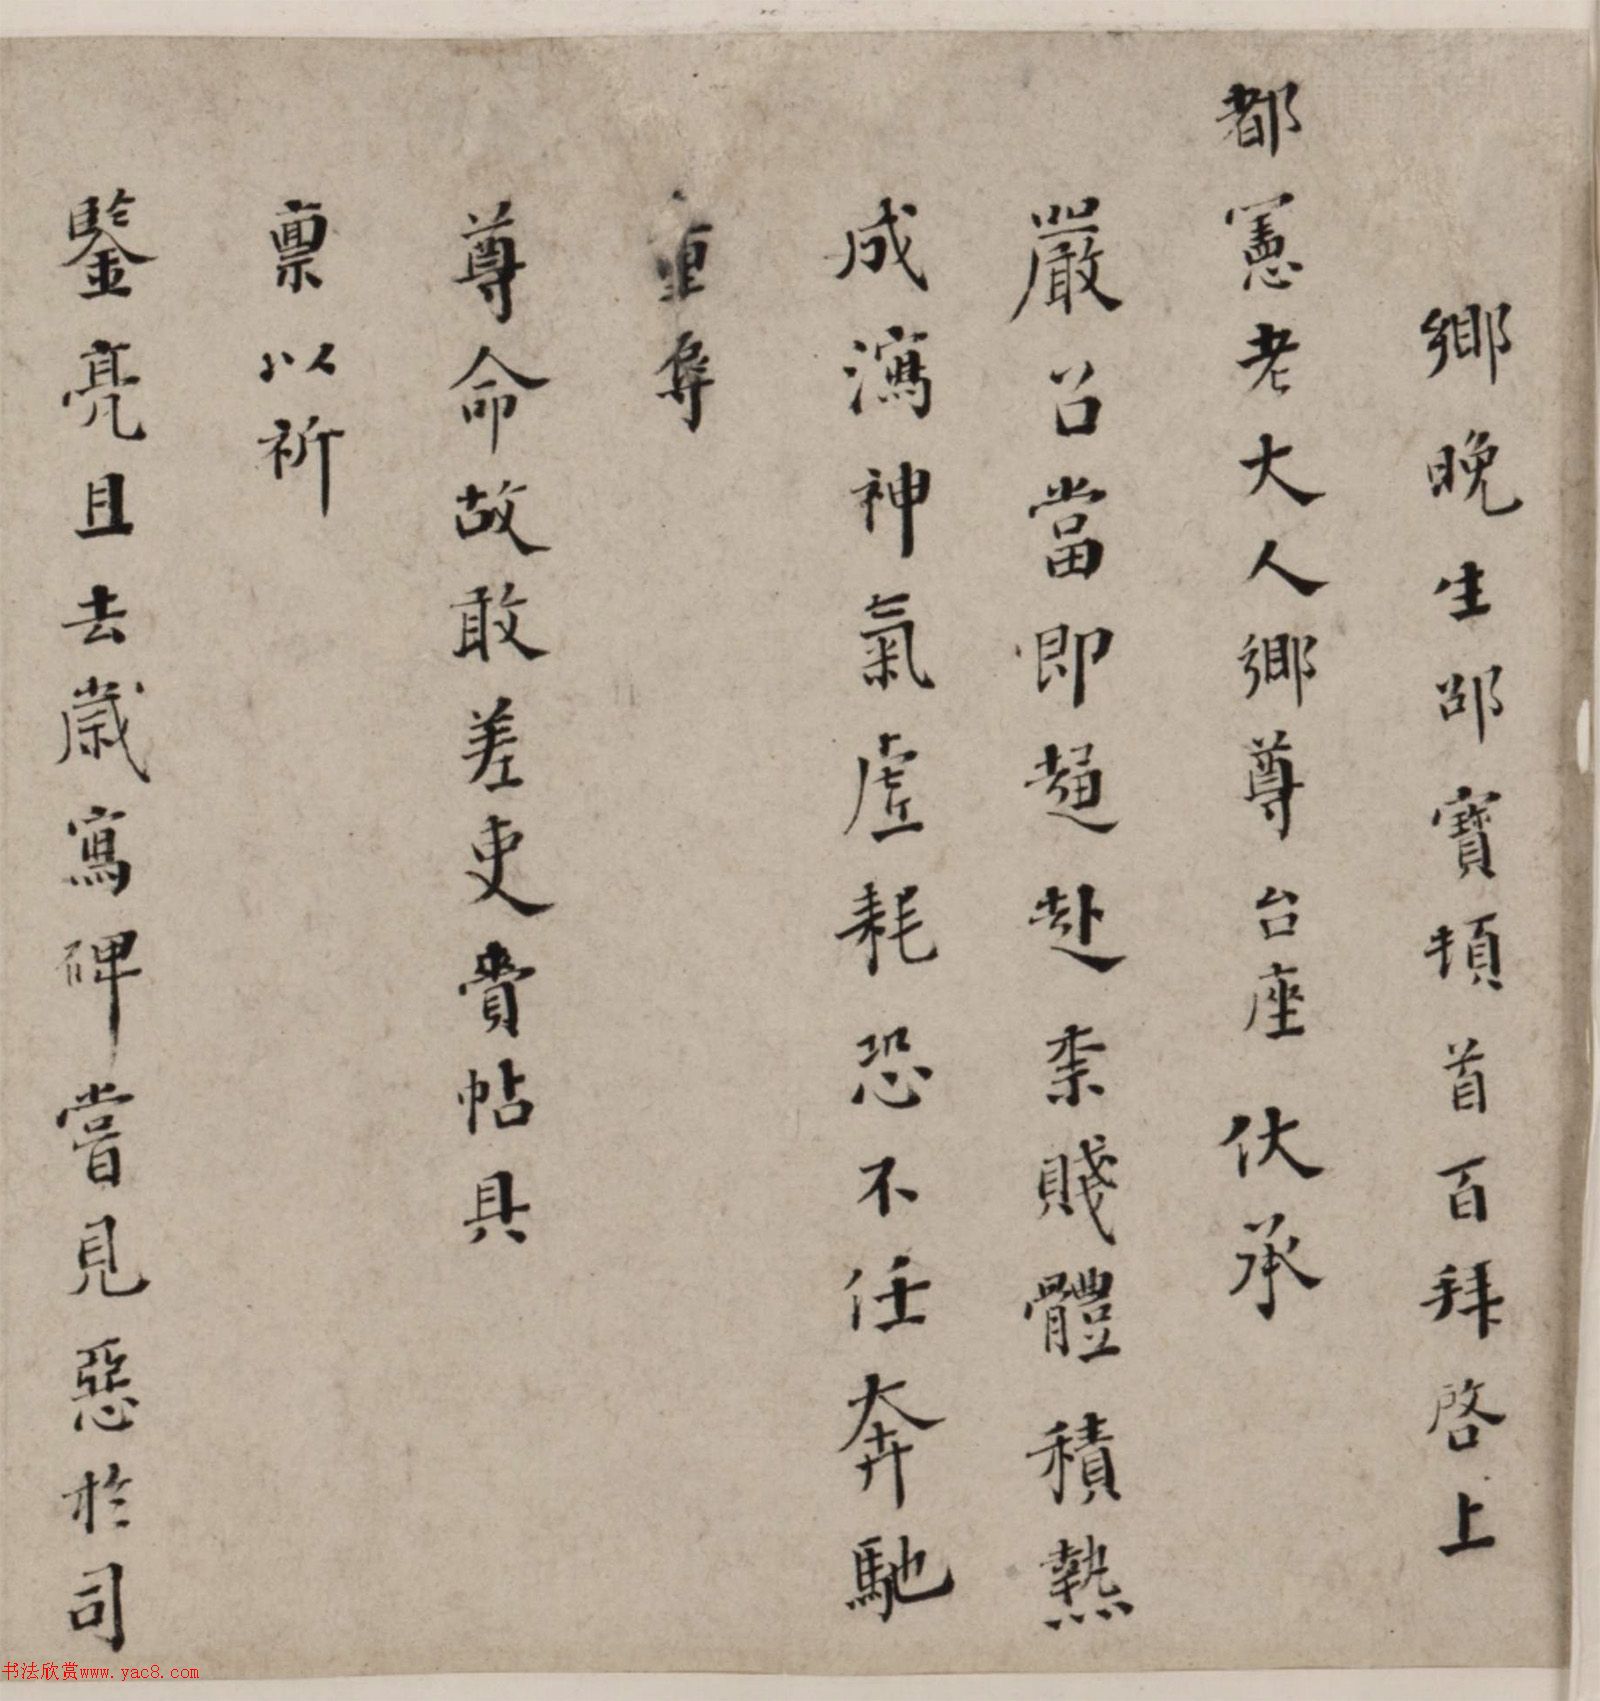 鄉晚生邵寶頓首百拜啓上
都憲老大人鄉尊台座伏承
嚴召當即趨赴柰賤體積熱
成瀉神氣虛耗恐不任奔馳
重辱
尊命故敢差吏賫帖具
禀以祈
鑒亮且去歲寫碑嘗見惡於司
书法欣赏www.yac8.com